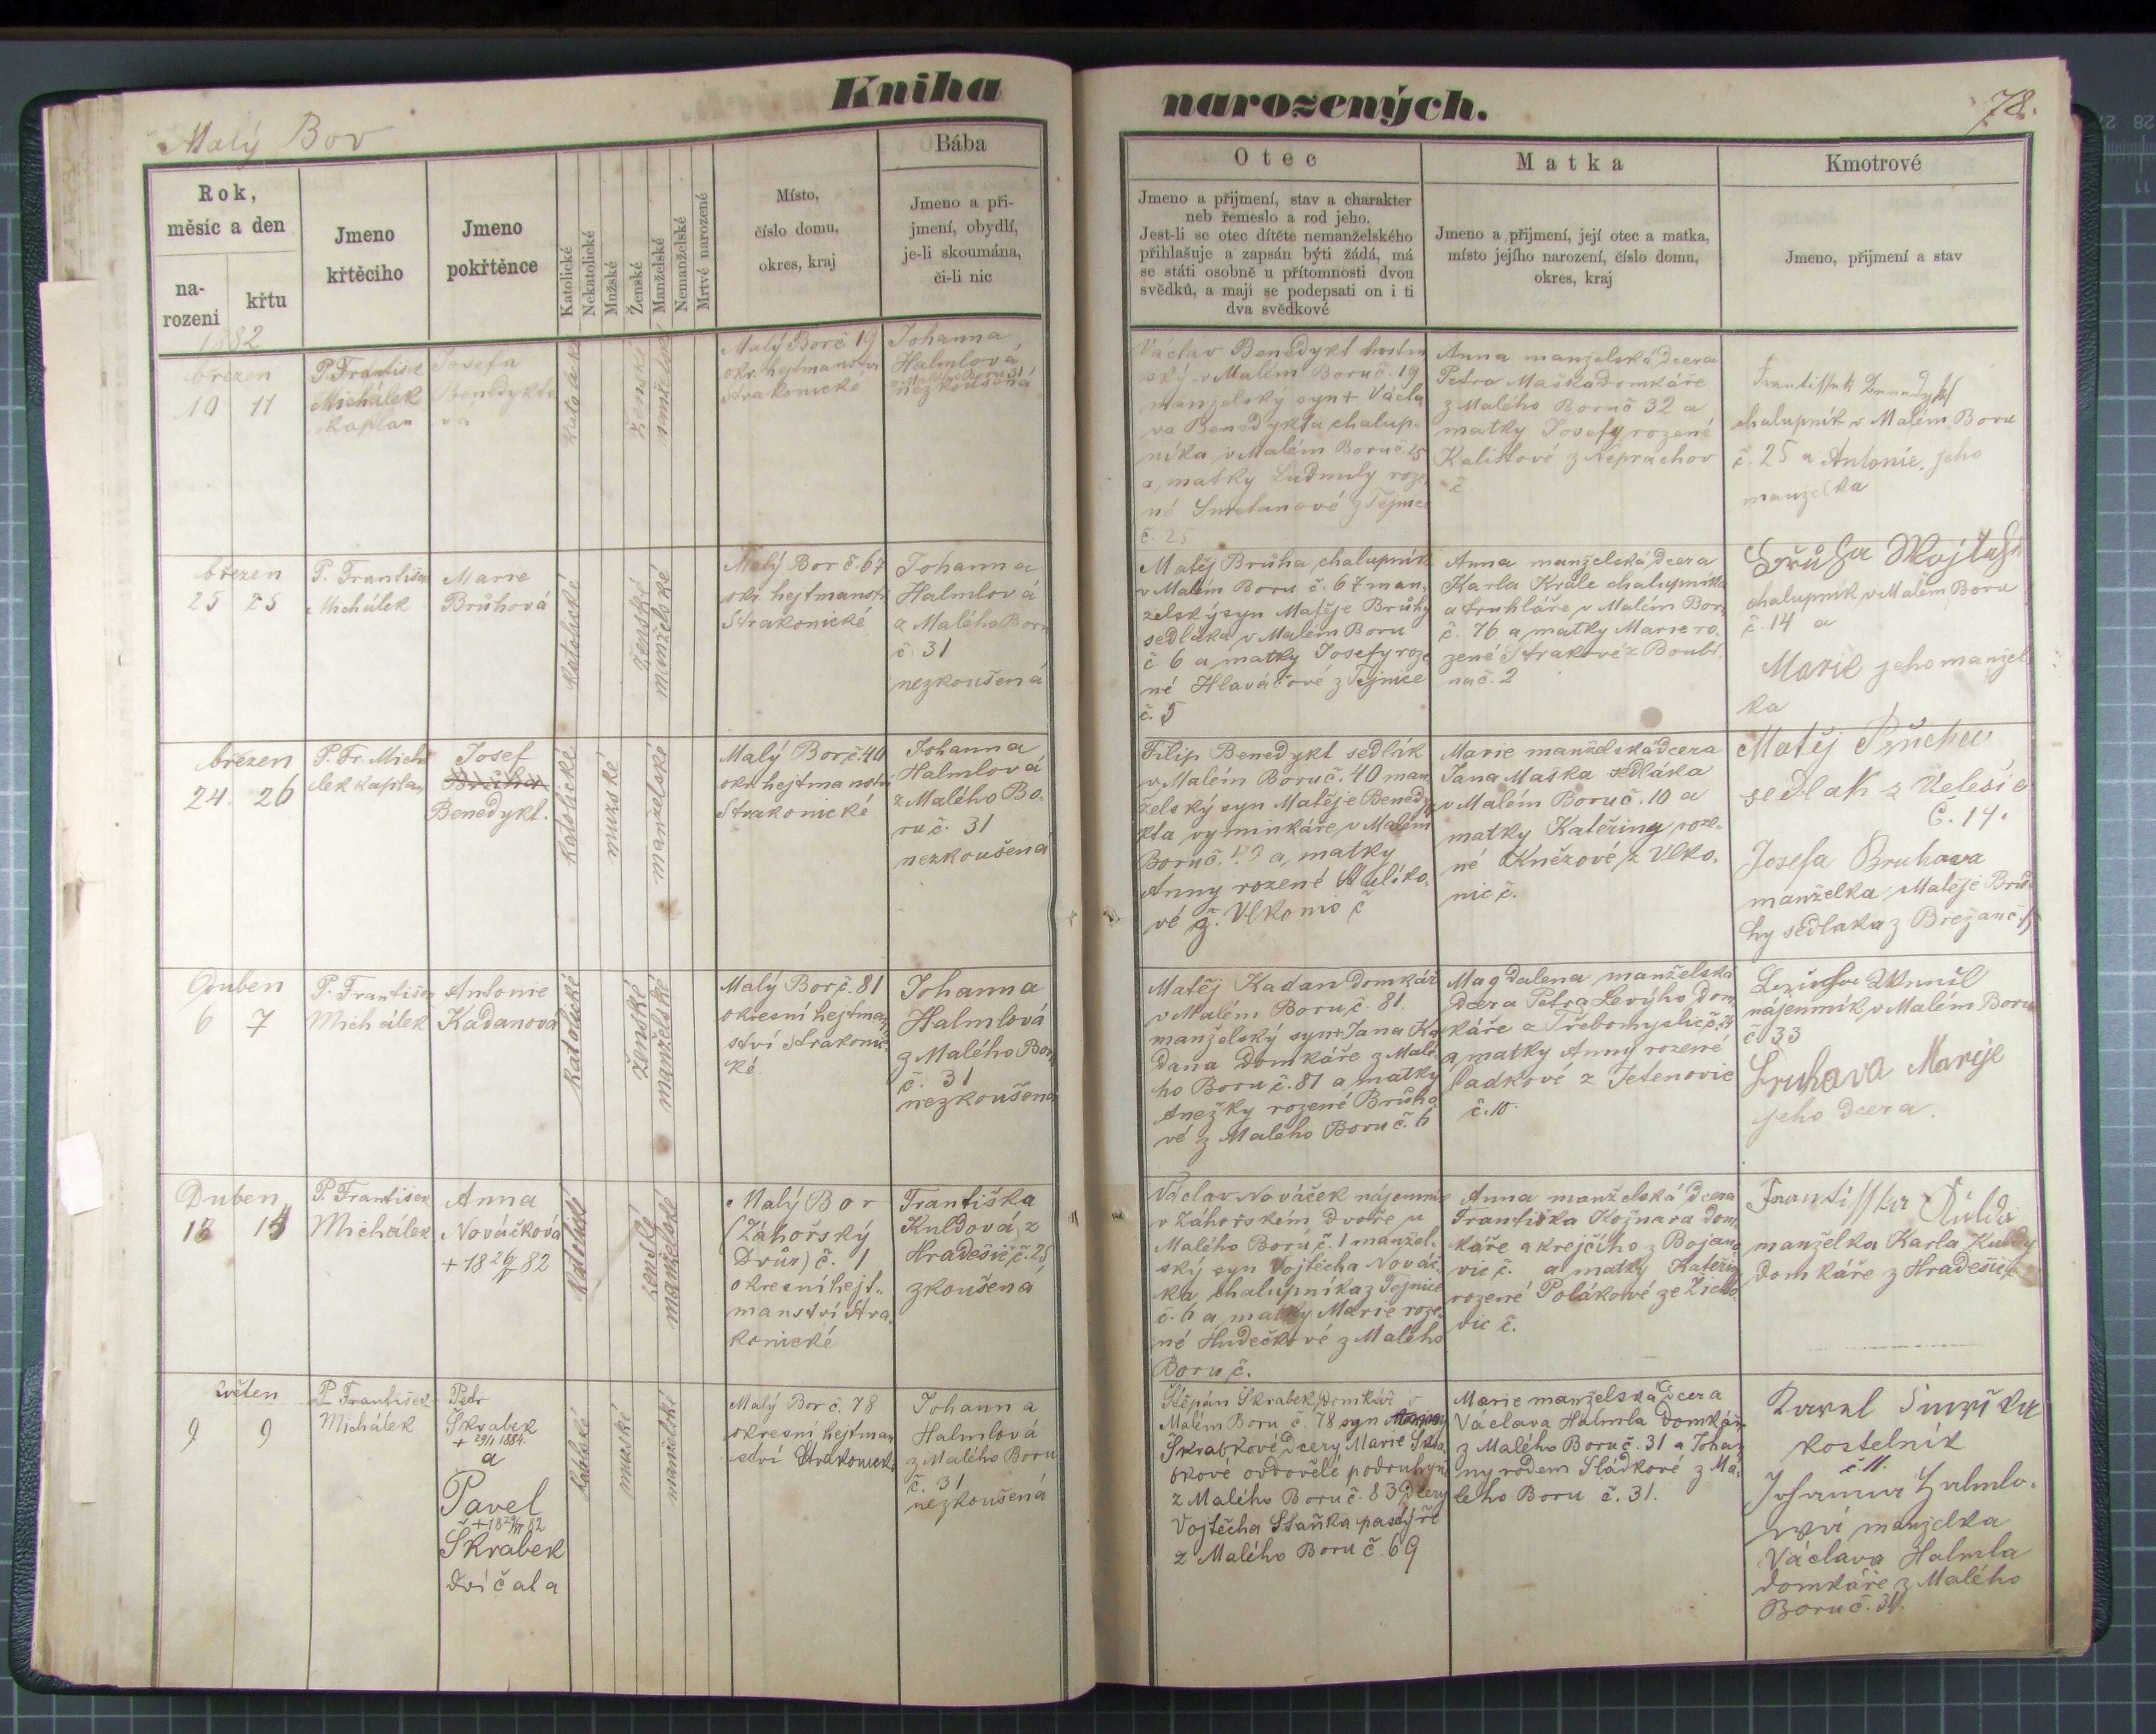 Kniha narozených.
78.
Malý Bor
Rok,
měsíc a den
na-
rozeni
křtu
Jmeno
křtěcího
Jmeno
pokřtěnce
Katolické
Nekatolické
Mužské
Ženské
Manželské
Nemanželské
Mrtvé narozené
Místo,
číslo domu,
okres, kraj
Bába
Jmeno a při-
jmení, obydlí,
je-li skoumána,
či-li nic
Otec
Jmeno a přijmení, stav a charakter
neb řemeslo a rod jeho.
Jest-li se otec dítěte nemanželského
přihlašuje a zapsán býti žádá, má
se státi osobně u přítomnosti dvou
svědků, a mají se podepsati on i ti
dva svědkové
Matka
Jmeno a přijmení, její otec a matka,
místo jejího narození, číslo domu,
okres, kraj
Kmotrové
Jmeno, přijmení a stav
1882
březen
10 11
P. František
Michálek
kaplan
Josefa
Benedykto
vá
katolické
ženské
manželské
Malý Bor č 19
okr. hejtmanství
Strakonické
Johanna
Halmlová
z Malého Boru 31
nezkoušená
Václav Benedykt hostin
ský v Malém Boru č. 19
manželský syn + Václa
va Benedykta chalup-
níka v Malém Boru č. 25
a matky Ludmily roze
né Smetanové z Týnice
č. 25
Anna manželská dcera
Petra Maška domkáře
z Malého Boru č 32 a
matky Josefy rozené
Kalistové z Neprachov
č.
Frantissek Benedykt
chalupník v Malém Boru
č. 25 a Antonie, jeho
manželka
březen
25 25
P. František
Michálek
Marie
Brůhová
katolické
ženské
manželské
Malý Bor č. 67
okr. hejtmanství
Strakonické
Johanna
Halmlová
z Malého Boru
č 31
nezkoušená
Matěj Brůha, chalupník
v Malém Boru č. 67 man-
želský syn Matěje Brůhy
sedláka v Malém Boru
č. 6 a matky Josefy roze
né Hlaváčové z Týnice
č. 5
Anna manželská dcera
Karla Krále chalupníka
a truhláře v Malém Boru
č. 76 a matky Marie ro-
zené Strakové z Boubí
na č. 2
chalupník v Malém Boru
č. 14 a
Marie jeho manžel
ka
březen
24. 26
P. Fr. Mich
álek kaplan
Josef
Brůha
Benedykt.
katolické
mužské
manželské
Malý Bor č. 40
okr. hejtmanství
Strakonické
Johanna
Halmlová
z Malého Bo-
ru č. 31
nezkoušená
Filip Benedykt sedlák
v Malém Boru č. 40 man
želský syn Matěje Benedy
kta výminkáře v Malém
Boru č. 40 a matky
Anny rozené Kulíko-
vé z. Vlkonic č
Marie manželská dcera
Jana Maška sedláka
v Malém Boru č. 10 a
matky Kateřiny roze-
né Kněžové z Vlko-
nic č.
Matěj Průcha
sedlak z Úlesic
č. 14.
Josefa Bruhova
manželka Matěje Brů-
hy sedlaka z Břežan č. 15
Duben
6 7
P. František
Michálek
Antonie
Kadanová
katolické
ženské
manželské
Malý Bor č. 81
okresní hejtman
ství Strakonic-
ké.
Johanna
Halmlová
z Malého Boru
č. 31
nezkoušená
Matěj Kadan domkář
v Malém Boru č. 81.
manželský syn + Jana Ka
dana domkáře z Malé-
ho Boru č. 81 a matky
Anežky rozené Brůho
vé z Malého Boru č. 6
Magdalena manželská
dcera Petra Levýho dom
káře z Třebomyslic č. 24
a matky Anny rozené
Ladkové z Jetenovic
č. 10.
nájemník v Malém Boru
č 33
Bruhava Marije
jeho dcera.
Duben
P. František
Michálek
Anna
Nováčková
+ 18 26/5 82
katolické
ženské
manželské
Malý Bor
(Záhořský
Dvůr) č. 1
okresní hejt-
manství Stra-
konické
Františka
Kuldová z
Hradešic č. 25
zkoušená
Václav Nováček nájemník
v Záhořském dvoře u
Malého Boru č. 1 manžel-
ský syn Vojtěcha Nováč-
ka chalupníka z Týnice
č. 6 a matky Marie roze
né Hudečkové z Malého
Boru č.
Anna manželská dcera
Františka Kožnara dom
káře a krejčího z Bojano
vic č. a matky Kateřiny
rozené Polákové ze Žicho
vic č.
Frantisska Kulda
manželka Karla Kuldy
domkáře z Hradešic
květen
9 9
P. František
Michálek
Petr
Škrabek
+ 29/1 1884.
a
Pavel
+ 18 29/ 82
Škrabek
dvíčata
katolické
mužské
manželské
Malý Bor č. 78
okresní hejtman
ství Strakonické
Johanna
Halmlová
z Malého Boru
č. 31
nezkoušená
Štěpán Škrabek, domkář v
Malém Boru č. 78 syn
Škrabkové dcery Marie Škra
bkové ovdovělé podruhyně
z Malého Boru č. 83 dcery
Vojtěcha Staňka pastýře
z Malého Boru č. 69
Marie manželská dcera
Václava Halmla domkáře
z Malého Boru č. 31 a Johan
ny rodem Sládkové z Ma-
lého Boru č. 31.
Karel
kostelník
č. 11.
Johanna Halmlo-
wá manželka
Václava Halmla
domkáře z Malého
Boru č. 31.